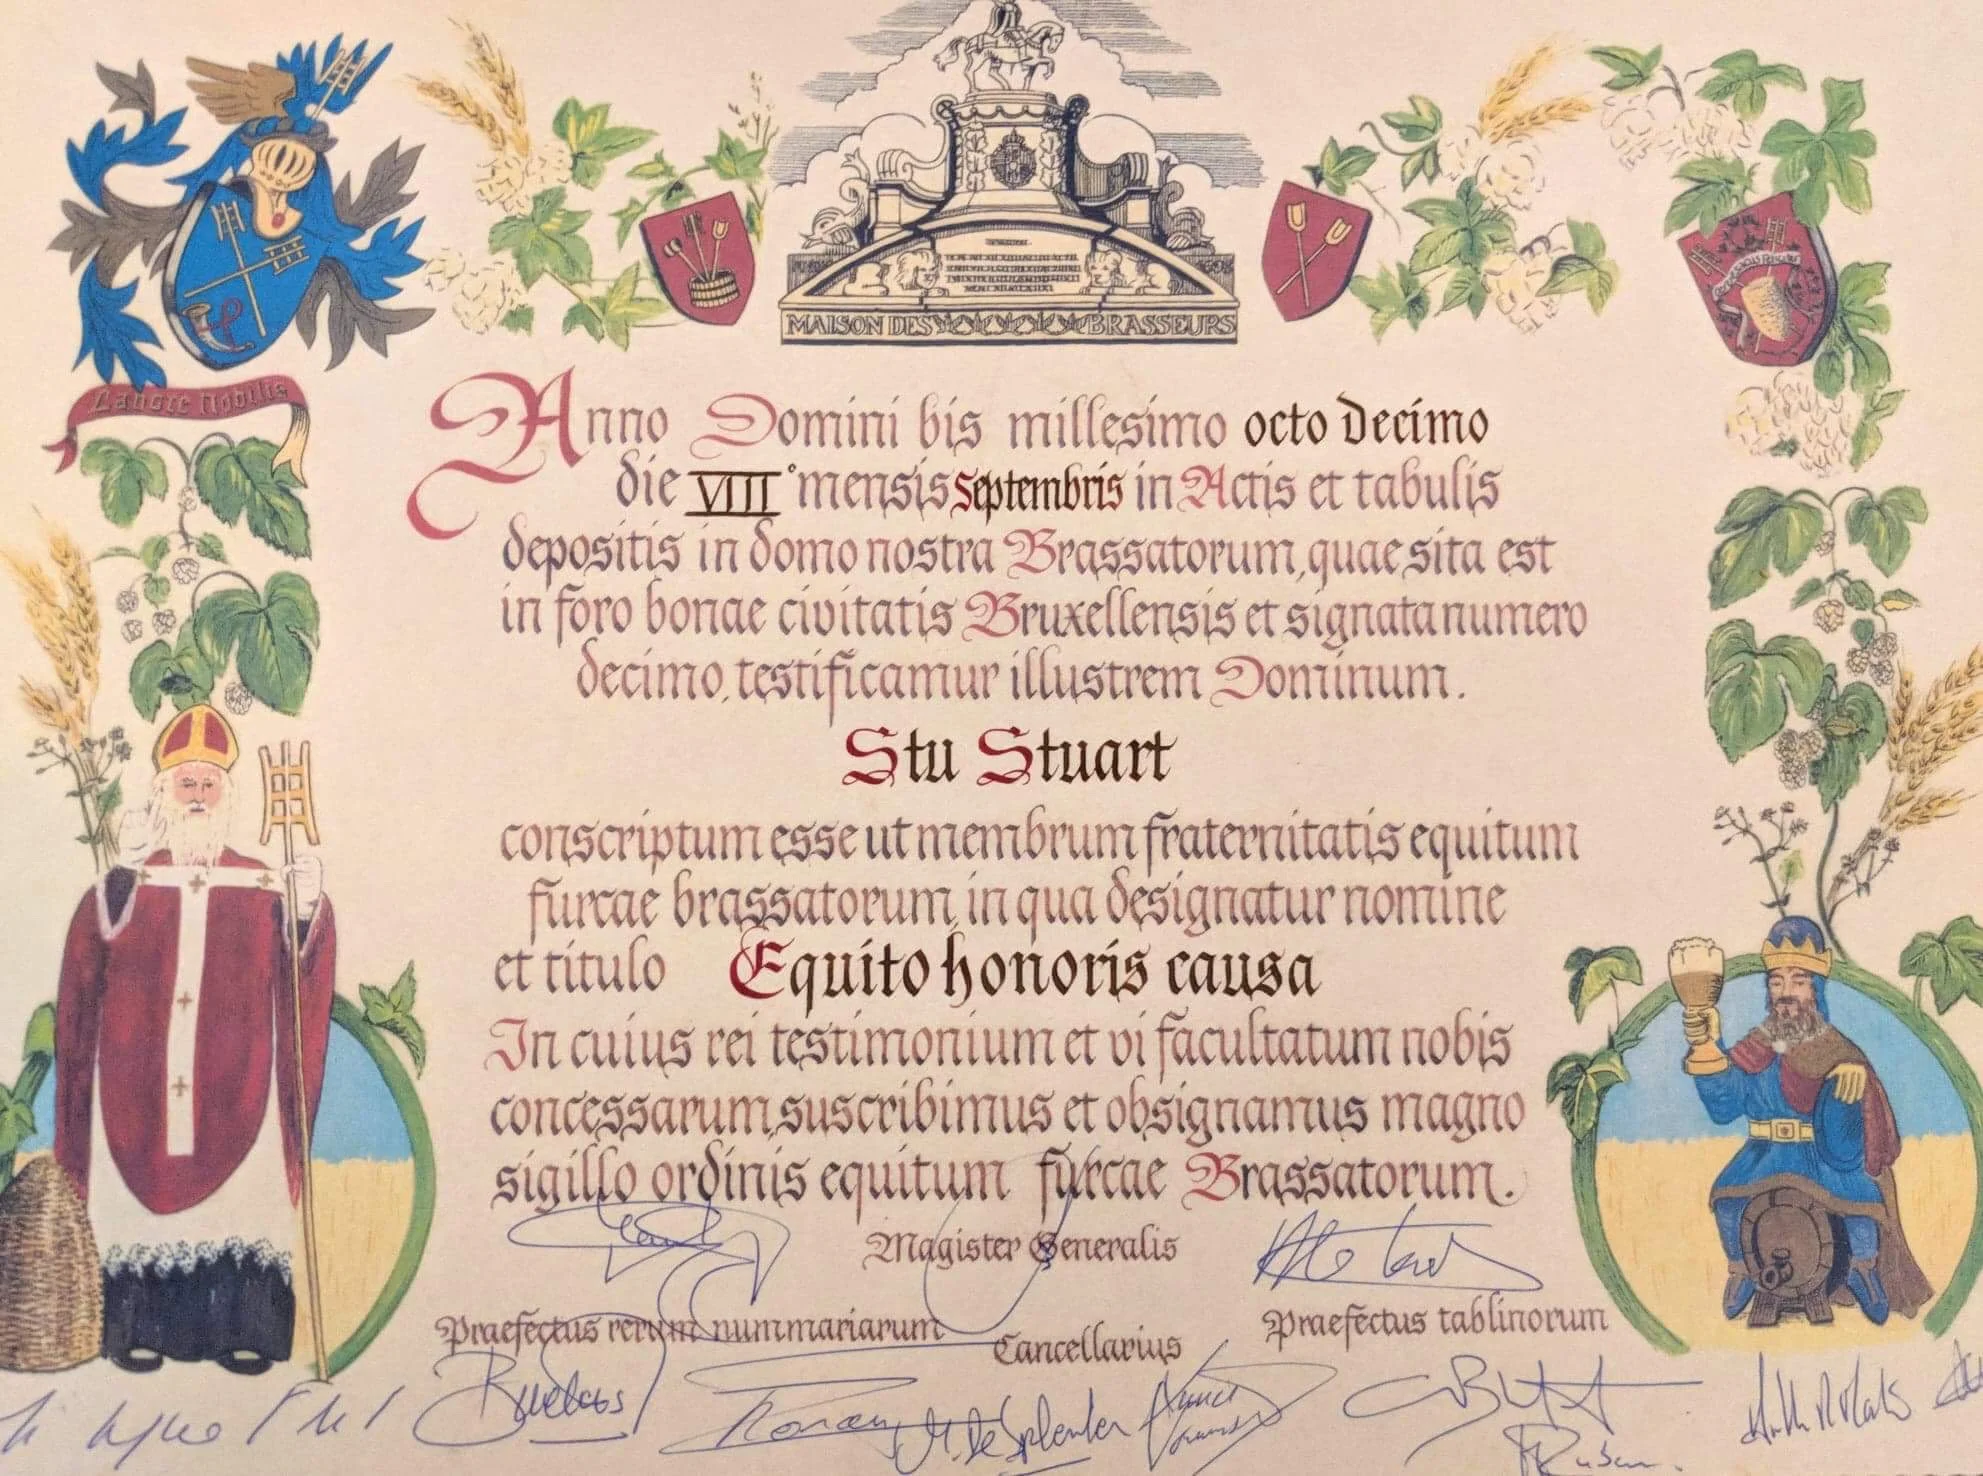 MAISON DES BRASSEURS
Anno Domini bis millesimo octo decimo
die VIII° mensis Septembris in Actis et tabulis
depositis in domo nostra Brassatorum, quae sita est
in foro bonae civitatis Bruxellensis et signata numero
decimo, testificamur illustrem Dominum.
Stu Stuart
conscriptum esse ut membrum fraternitatis equitum
furcae brassatorum, in qua designatur nomine
et titulo Equito honoris causa
In cuius rei testimonium et vi facultatum nobis
concessarum, suscribimus et obsignamus magno
sigillo ordinis equitum furcae Brassatorum.
Magister Generalis
Praefectus rerum nummariarum
Cancellarius
Praefectus tablinorum